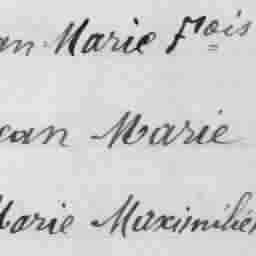 an Marie Fois
ean Marie
Marie Maximilien